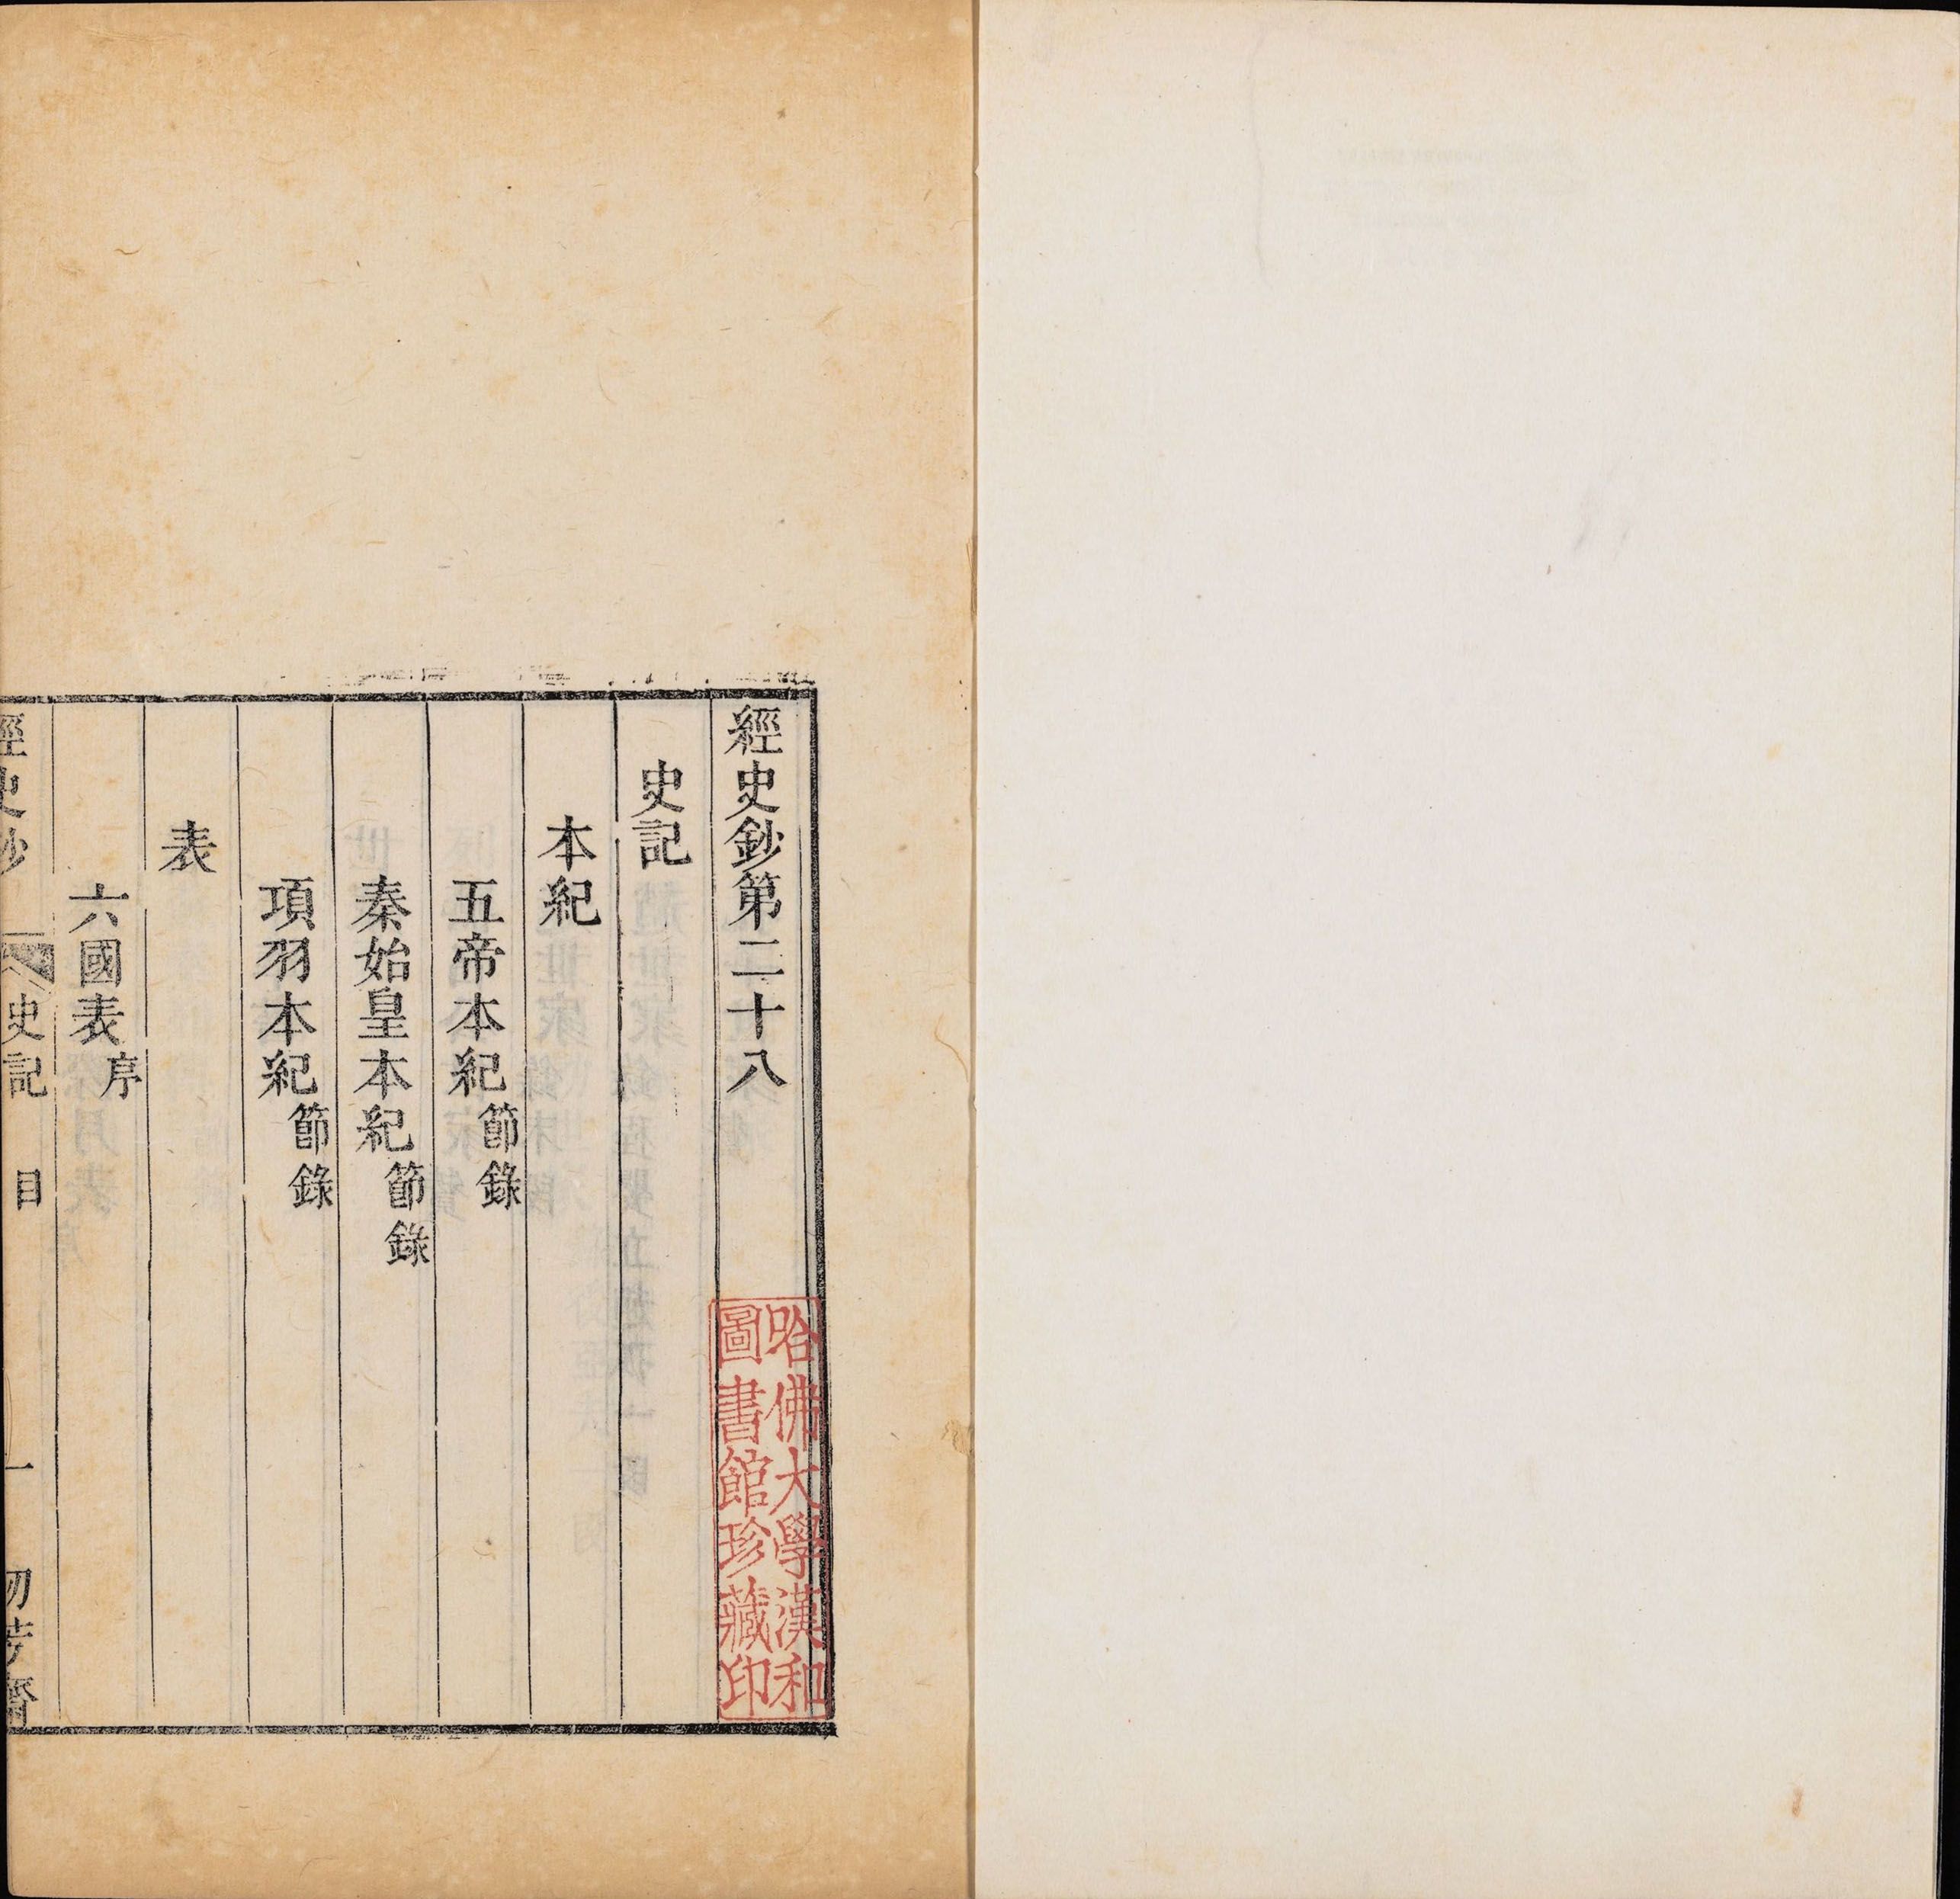 經史鈔第二十八
史記
本紀
五帝本紀節錄
秦始皇本紀節錄
項羽本紀節錄
表
六國表序
經史鈔 史記 目 一
哈佛大學漢和
圖書館珍藏印